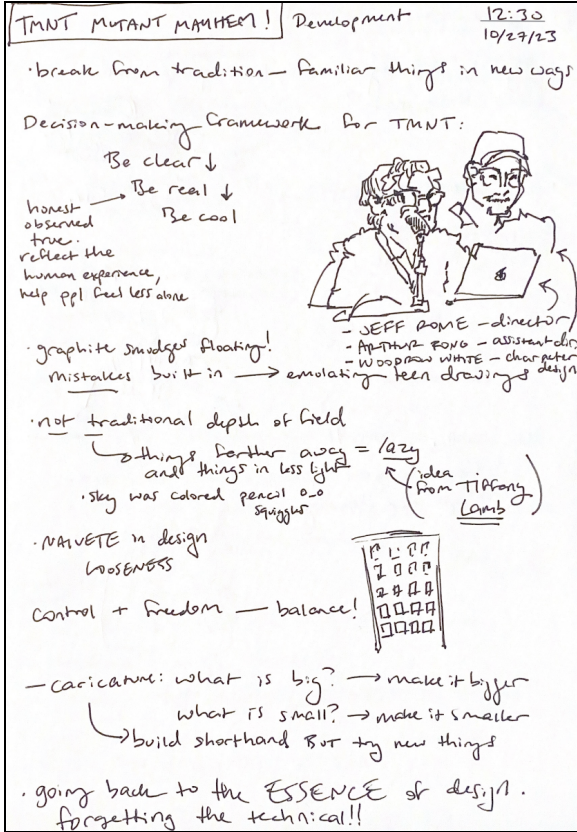 TMNT MUTANT MAYHEM! Development
12:30
10/27/23
· break from tradition — familiar things in new ways
Decision-making framework for TMNT:
Be clear ↓
Be real ↓
Be cool
honest
observed
true.
reflect the
human experience,
help ppl feel less alone
- JEFF ROWE - director
- ARTHUR FONG - assistant dir.
- WOODROW WHITE - character
design
· graphite smudges floating!
mistakes built in → emulating teen drawings
· not traditional depth of field
→ things farther away = lazy
and things in less light
· sky was colored pencil o_o
squiggles
(idea
from Tiffany
Lamb)
· NAIVETE in design
LOOSENESS
Control + freedom — balance!
— caricature: what is big? → make it bigger
what is small? → make it smaller
→ build shorthand BUT try new things
· going back to the ESSENCE of design.
forgetting the technical!!